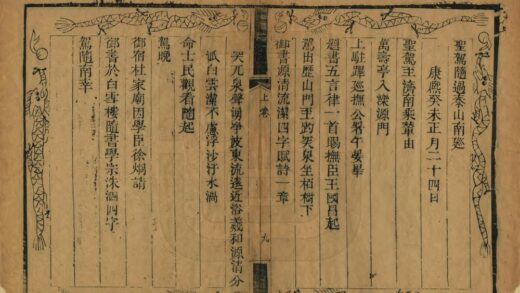 聖駕隨過泰山南廵
康熙癸未正月二十四日
聖駕至濟南乘輦由
萬壽亭入濼源門
上駐蹕廵撫公署午晏畢
書五言律一首賜撫臣王國昌起
駕出歷山門至趵突泉坐柏樹下
御書源清流潔四字賦詩一章
上卷
九
突兀泉聲湧淨波東流遠近浴羲和源清分
派白雲潔不慮浮沙汙水渦
命士民觀看隨起
駕晚
御宿杜家廟因學臣徐炯請
御書於白雪樓隨書學宗洙泗四字
駕隨南幸